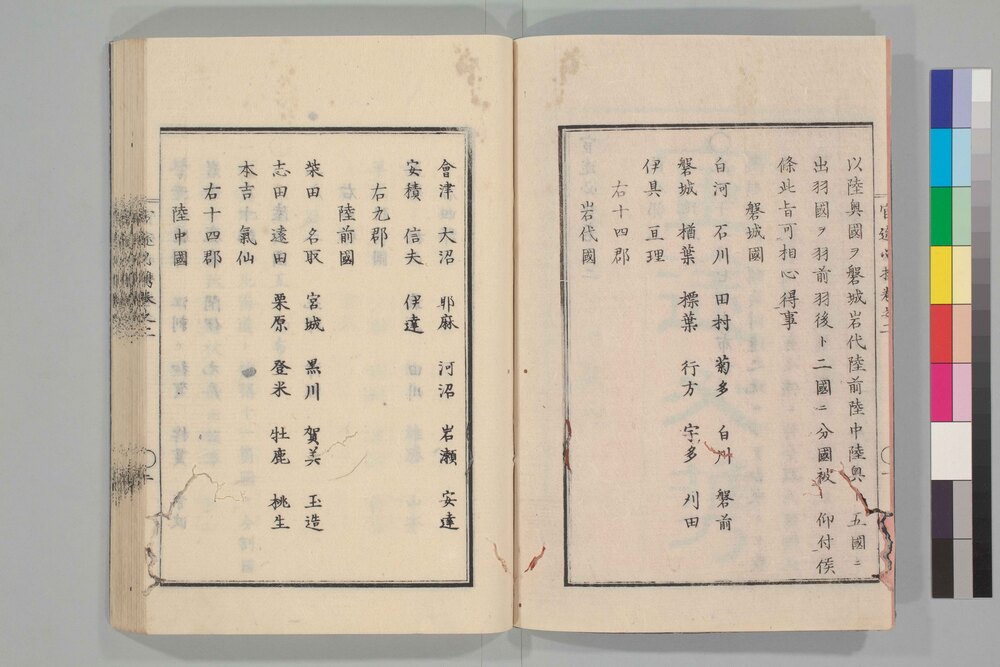 以陸奥國ヲ磐城岩代陸前陸中陸奥ト五國ニ
出羽國ヲ羽前羽後ト二國ニ分國被　仰付候
條此旨可相心得事
磐城國
白河　石川　田村　菊多　白川　磐前
磐城　楢葉　標葉　行方　宇多　刈田
伊具　亘理
右十四郡
岩代國
會津　大沼　耶麻　河沼　岩瀬　安達
安積　信夫　伊達
右九郡
陸前國
柴田　名取　宮城　黒川　賀美　玉造
志田　遠田　栗原　登米　牡鹿　桃生
本吉　氣仙
右十四郡
陸中國